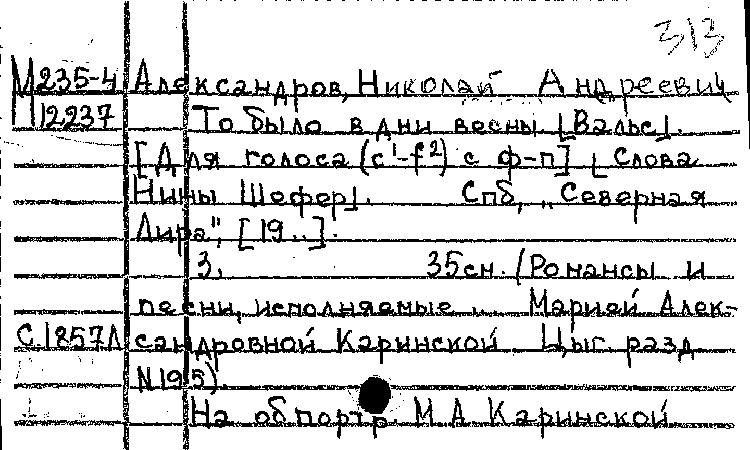 313
М235-4 Александров, Николай Андреевич
М12237 То было в дни весны [Вальс].
[Для голоса (c¹-f²) с ф-п] [Слова
Нины Шефер]. Спб, „Северная
Лира", [19..].
3. 35см. (Романсы и
песни, исполняемые .. Марией Алек-
С.1857Л сандровной Каринской Цыг. разд
N195).
На об портр. М А Каринской